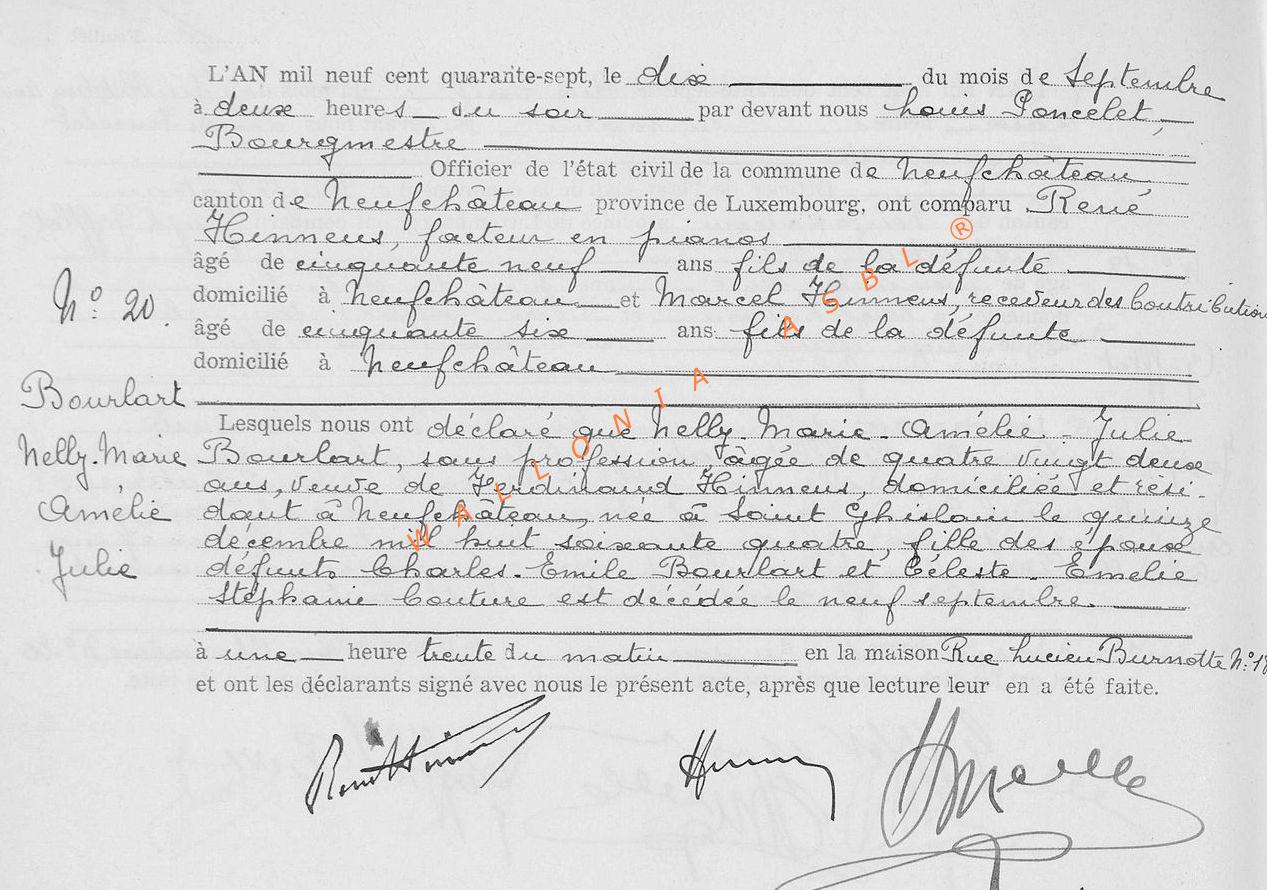 L'AN mil neuf cent quarante-sept, le dix du mois de Septembre
à deux heures du soir par devant nous Louis Poncelet,
Bourgmestre
Officier de l'état civil de la commune de Neufchâteau
canton de Neufchâteau province de Luxembourg, ont comparu René
Hinnens, facteur en pianos
âgé de cinquante neuf ans fils de la défunte
N° 20.
domicilié à Neufchâteau et Marcel Hinnens, receveur des Contributions
âgé de cinquante six ans fils de la défunte
domicilié à Neufchâteau
Bourlart
Nelly-Marie
Amélie
Julie
Lesquels nous ont déclaré que Nelly-Marie-Amélie-Julie
Bourlart, sans profession, âgée de quatre vingt deux
ans, veuve de Ferdinand Hinnens, domiciliée et rési
dant à Neufchâteau, née à Saint Ghislain le quinze
décembre mil huit soixante quatre, fille des époux
défunts Charles-Emile Bourlart et Céleste-Emelie
Stéphanie Couture est décédée le neuf septembre
à une heure trente du matin en la maison Rue Lucien Burnotte N° 18
et ont les déclarants signé avec nous le présent acte, après que lecture leur en a été faite.
WALLONIA ASBL ®